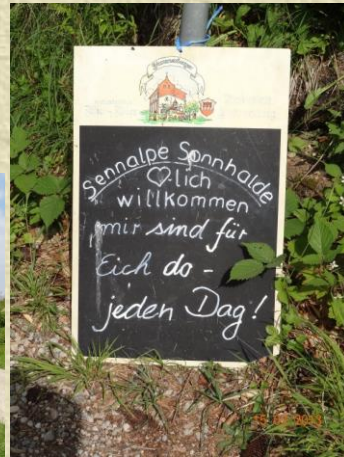 Sennalpe Sonnhalde
♡lich
willkommen
mir sind für
Eich do -
jeden Dag!